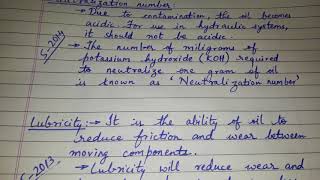 Neutralization number:
→ Due to contamination, the oil becomes
acidic. For use in hydraulic systems,
it should not be acidic.
S-2014
→ The number of miligrams of
potassium hydroxide (KOH) required
to neutralize one gram of oil
is known as 'Neutralization number'
Lubricity:→ It is the ability of oil to
reduce friction and wear between
moving components.
S-2013.
→ Lubricity will reduce wear and